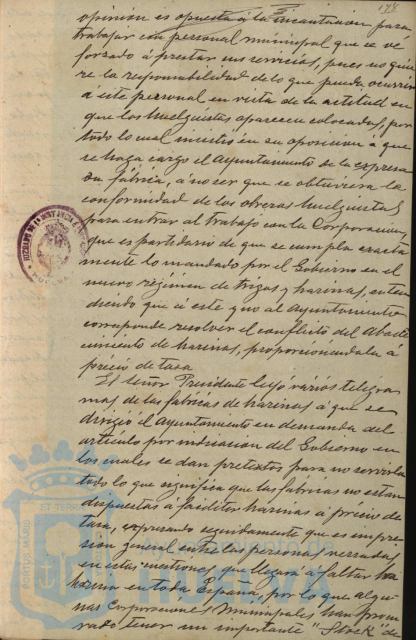 178
opinión es opuesta á la incautación para
trabajar con personal municipal que se ve
forzado á prestar sus servicios, pues no quie-
re la responsabilidad de lo que pueda ocurrir
á este personal en vista de la actitud en
que los huelguistas aparecen colocados, por
todo lo cual insistió en su oposición a que
se haga cargo el Ayuntamiento de la expresa-
da fábrica, á no ser que se obtuviera la
conformidad de los obreros huelguistas
para entrar al trabajo con la Corporación,
que es partidario de que se cumpla exacta-
mente lo mandado por el Gobierno en el
nuevo régimen de trigos y harinas, enten-
diendo que á este y no al Ayuntamiento
corresponde resolver el conflicto del abaste-
cimiento de harinas, proporcionándola á
precio de tasa
El Señor Presidente leyó varios telegra-
mas de las fábricas de harinas á que se
dirigió el Ayuntamiento en demanda del
artículo por indicación del Gobierno en
los cuales se dan pretextos para no servirla
todo lo que significa que las fabricas no estan
dispuestas á facilitar harinas á precio de
tasa, expresando seguidamente que es impre-
sion general entre las personas versadas
en estas cuestiones que llegará á faltar la
harina en toda España, por lo que algu-
nas Corporaciones Municipales han procu-
rado tener un importante "Stock" de